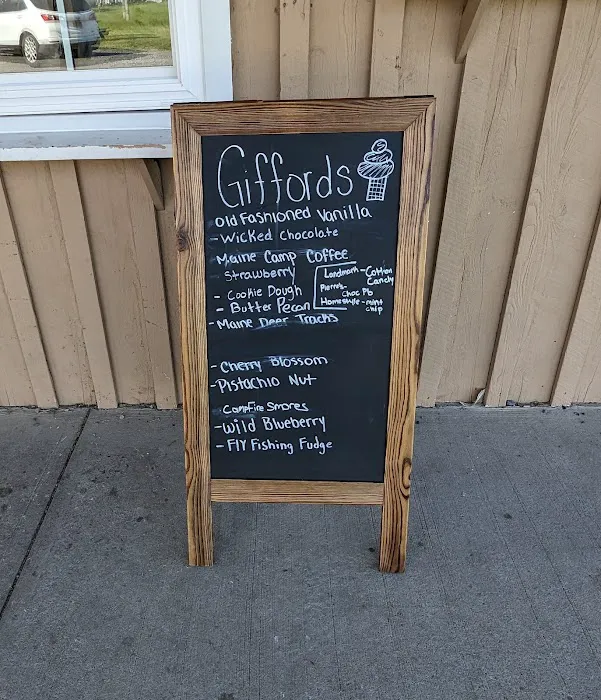 Giffords
Old Fashioned Vanilla
- Wicked Chocolate
Maine Camp Coffee
Strawberry
- Cookie Dough
- Butter Pecan
- Maine Deer Tracks
Landmark - Cotton
Candy
Pierre's
Choc Pb
Homestyle - mint
chip
- Cherry Blossom
- Pistachio Nut
CampFire Smores
- Wild Blueberry
- Fly Fishing Fudge